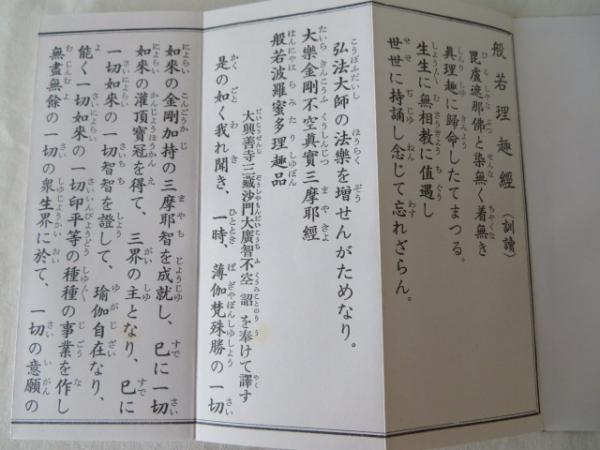 般若理趣經 (訓讀)
毘盧遮那佛と染無く着無き
真理趣に歸命したてまつる。
生生に無相教に值遇し
世世に持誦し念じて忘れざらん。
弘法大師の法樂を增せんがためなり。
大樂金剛不空真實三摩耶經
般若波羅蜜多理趣品
大興善寺三藏沙門大廣智不空 詔 を奉けて譯す
是の如く我れ聞き、一時、薄伽梵殊勝の一切
如來の金剛加持の三摩耶智を成就し、已に一切
如來の灌頂寶冠を得て、三界の主となり、已に
一切如來の一切智智を證して、瑜伽自在なり、
能く一切如來の一切印平等の種種の事業を作し
無盡無餘の一切の衆生界に於て、一切の意願の